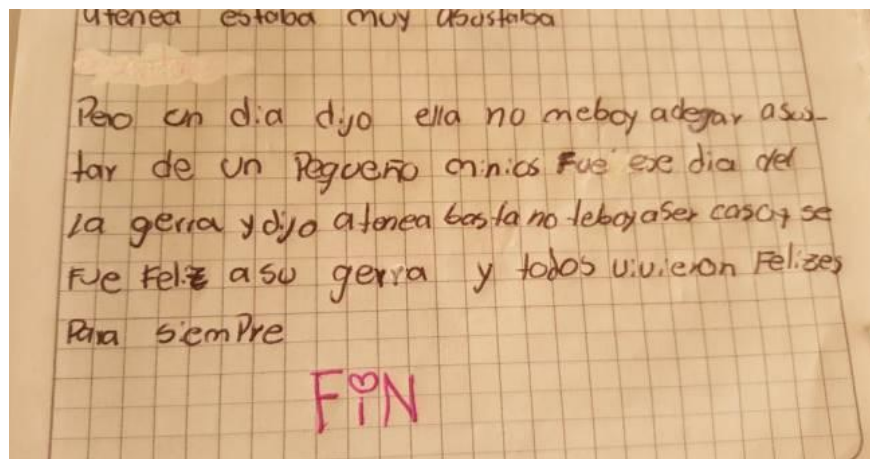 atenea estaba muy asustaba
Pero un dia dijo ella no meboy adegar asus-
tar de un Pequeño minios Fue ese dia del
la gerra y dijo atenea basta no teboy aser caso y se
Fue Feliz a su gerra y todos vivieron Felizes
Para siempre
FiN